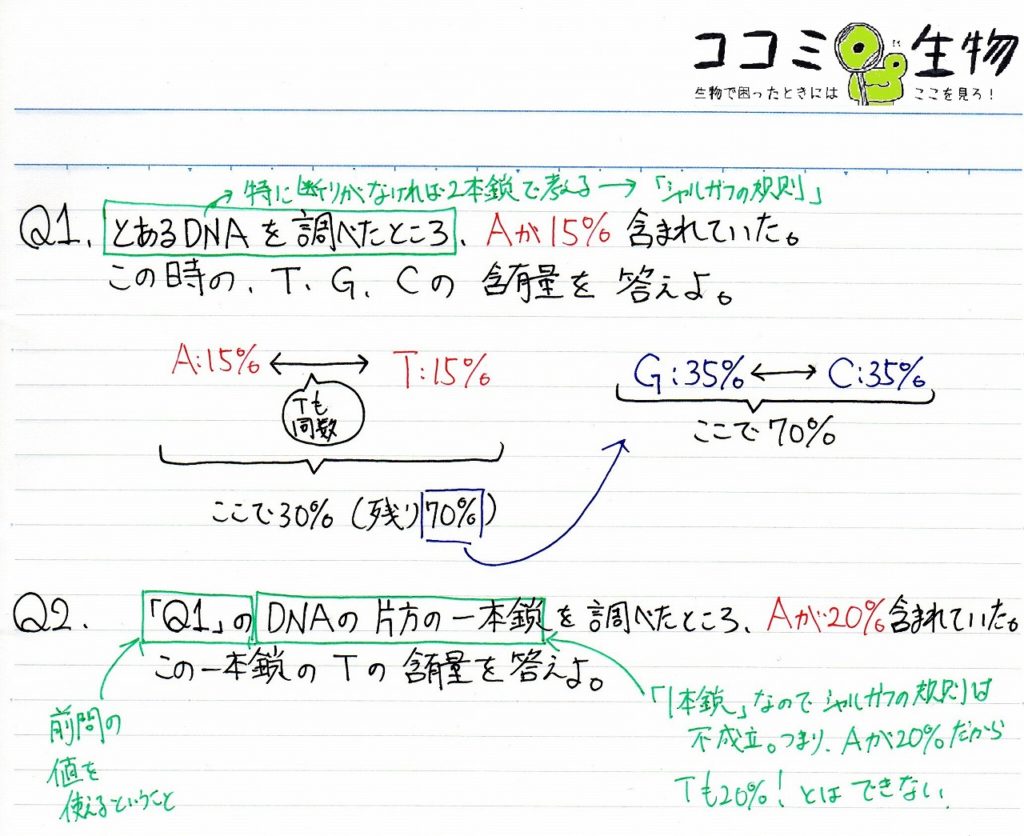 ココミロ生物
生物で困ったときには ここを見ろ!
→特に断りがなければ2本鎖で考える→「シャルガフの規則」
Q1. とあるDNAを調べたところ、Aが15%含まれていた。
この時の、T、G、Cの含有量を答えよ。
A:15% ⟷ T:15%
Tも
同数
G:35% ⟷ C:35%
ここで70%
ここで30%(残り70%)
Q2. 「Q1」のDNAの片方の一本鎖を調べたところ、Aが20%含まれていた。
この一本鎖のTの含有量を答えよ。
前問の
値を
使えるということ
「1本鎖」なのでシャルガフの規則は
不成立。つまり、Aが20%だから
Tも20%!とはできない.